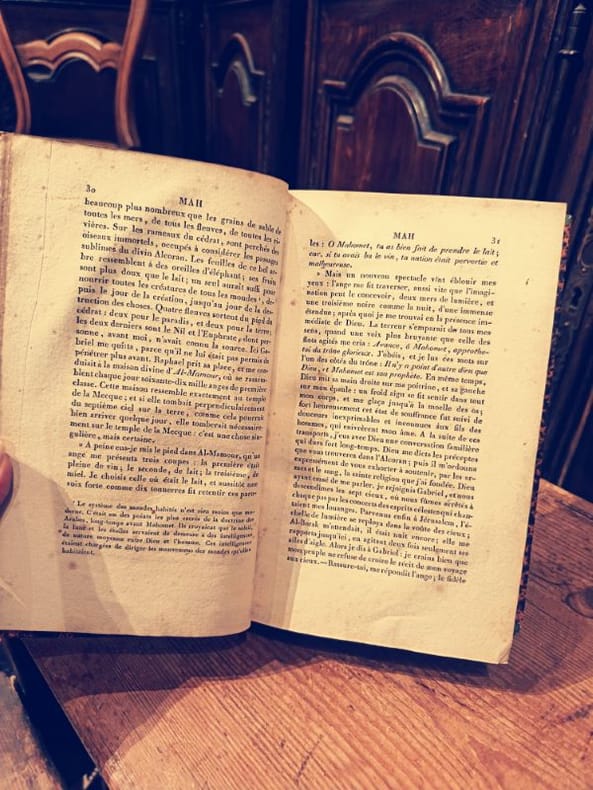 30
MAH
beaucoup plus nombreux que les grains de sable de
toutes les mers, de tous les fleuves, de toutes les ri-
vières. Sur les rameaux du cédrat, sont perchés des
oiseaux immortels, occupés à considérer les passages
sublimes du divin Alcoran. Les feuilles de ce bel ar-
bre ressemblent à des oreilles d'éléphant; ses fruits
sont plus doux que le lait; un seul aurait suffi pour
nourrir toutes les créatures de tous les mondes¹, de-
puis le jour de la création, jusqu'au jour de la des-
truction des choses. Quatre fleuves sortent du pied du
cédrat: deux pour le paradis, et deux pour la terre;
les deux derniers sont le Nil et l'Euphrate, dont per-
sonne, avant moi, n'avait connu la source. Ici Ga-
briel me quitta, parce qu'il ne lui était pas permis de
pénétrer plus avant. Raphaël prit sa place, et me con-
duisit à la maison divine d'Al-Mamour, où se rassem-
blent chaque jour soixante-dix mille anges de première
classe. Cette maison ressemble exactement au temple
de la Mecque; et si elle tombait perpendiculairement
du septième ciel sur la terre, comme cela pourrait
bien arriver quelque jour, elle tomberait nécessaire-
ment sur le temple de la Mecque: c'est une chose sin-
gulière, mais certaine.
» A peine eus-je mis le pied dans Al-Mamour, qu'un
ange me présenta trois coupes: la première était
pleine de vin; la seconde, de lait; la troisième, de
miel. Je choisis celle où était le lait, et aussitôt une
voix forte comme dix tonnerres fit retentir ces paro-
¹ Le système des mondes habités n'est rien moins que mo-
derne. C'était un des points les plus secrets de la doctrine des
Arabes, long-temps avant Mahomet. Ils croyaient que le soleil,
la lune et les étoiles servaient de demeure à des intelligences
de nature moyenne entre Dieu et l'homme. Ces intelligences
étaient chargées de diriger les mouvemens des mondes qu'elles
habitaient.
MAH
31
les: O Mahomet, tu as bien fait de prendre le lait;
car, si tu avais bu le vin, ta nation était pervertie et
malheureuse.
» Mais un nouveau spectacle vint éblouir mes
yeux: l'ange me fit traverser, aussi vite que l'imagi-
nation peut le concevoir, deux mers de lumière, et
une troisième noire comme la nuit, d'une immense
étendue; après quoi je me trouvai en la présence im-
médiate de Dieu. La terreur s'emparait de tous mes
sens, quand une voix plus bruyante que celle des
flots agités me cria: Avance, ô Mahomet, approche-
toi du trône glorieux. J'obéis, et je lus ces mots sur
l'un des côtés du trône: Il n'y a point d'autre dieu que
Dieu, et Mahomet est son prophète. En même temps,
Dieu mit sa main droite sur ma poitrine, et sa gauche
sur mon épaule: un froid aigu se fit sentir dans tout
mon corps, et me glaça jusqu'à la moelle des os;
fort heureusement cet état de souffrance fut suivi de
douceurs inexprimables et inconnues aux fils des
hommes, qui enivrèrent mon âme. A la suite de ces
transports, j'eus avec Dieu une conversation familière
qui dura fort long-temps. Dieu me dicta les préceptes
que vous trouverez dans l'Alcoran; puis il m'ordonna
expressément de vous exhorter à soutenir, par les ar-
mes et le sang, la sainte religion que j'ai fondée. Dieu
ayant cessé de me parler, je rejoignis Gabriel, et nous
descendîmes les sept cieux, où nous fûmes arrêtés à
chaque pas par les concerts des esprits célestes qui chan-
taient mes louanges. Parvenus enfin à Jérusalem, l'é-
chelle de lumière se reploya dans la voûte des cieux;
Al-Borak m'attendait, il était nuit encore; elle me
rapporta jusqu'ici, en agitant deux fois seulement ses
ailes d'aigle. Alors je dis à Gabriel: je crains bien que
mon peuple ne refuse de croire le récit de mon voyage
aux cieux.—Rassure-toi, me répondit l'ange; le fidèle